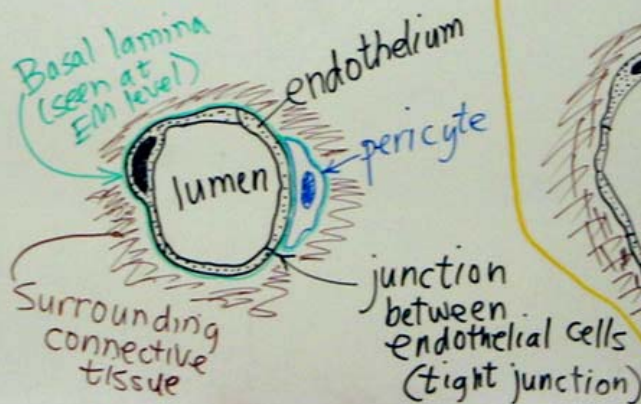 Basal lamina
(seen at
EM level)
endothelium
pericyte
lumen
junction
between
endothelial cells
(tight junction)
Surrounding
connective
tissue